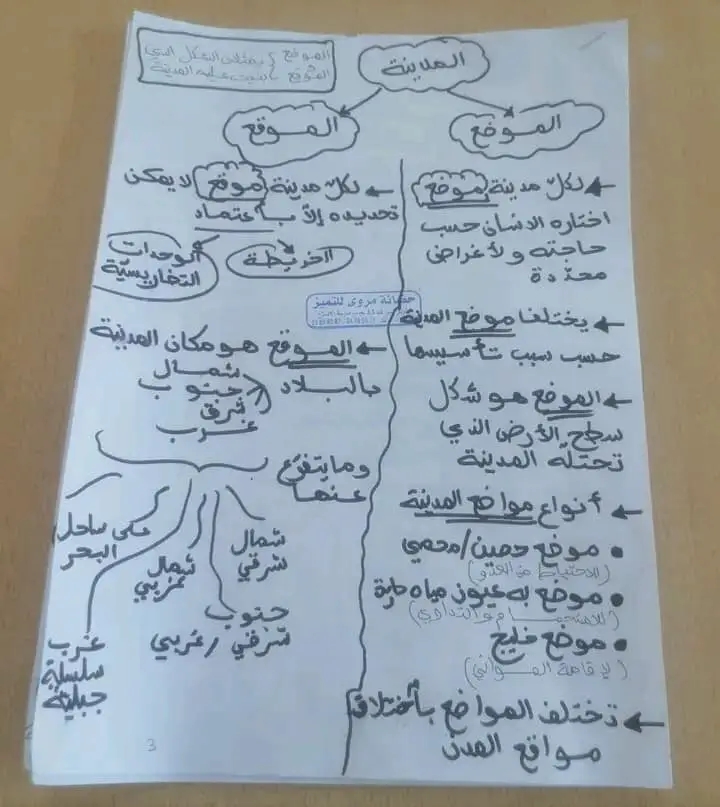 المدينة
الموضع } يمثلان الشكل الذي
الموقع } بنيت عليه المدينة
الموضع
الموقع
لكلّ مدينة موضع
اختاره الانسان حسب
حاجته ولأغراض
محدّدة
يختلف موضع المدينة
حسب سبب تأسيسها
الموضع هو شكل
سطح الأرض الذي
تحتلّه المدينة
أنواع مواضع المدينة
موضع حصين/محمي
(للاحتياط من العدو)
موضع به عيون مياه حارة
(للاستجمام والتداوي)
موضع خليج
(لإقامة الموانئ)
تختلف المواضع بأختلاف
مواقع المدن
لكلّ مدينة موقع لا يمكن
تحديده إلاّ بـاعتماد
الخريطة
الوحدات
التضاريسيّة
حضانة مروى للتميز
الموقع هو مكان المدينة
بالبلاد
شمال
جنوب
شرق
غرب
وما يتفرّع
عنها
شمال
شرقي
جنوب
شرقي/غربي
شمال
غربي
على ساحل
البحر
غرب
سلسلة
جبلية
3